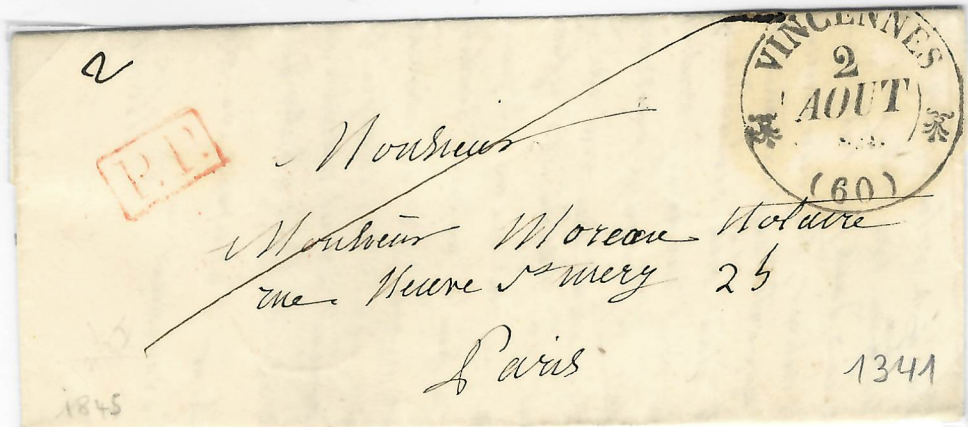 2
VINCENNES
2
AOUT
(60)
P.P.
Monsieur
Monsieur Moreau Notaire
rue Neuve St mery 25
Paris
1341
1845